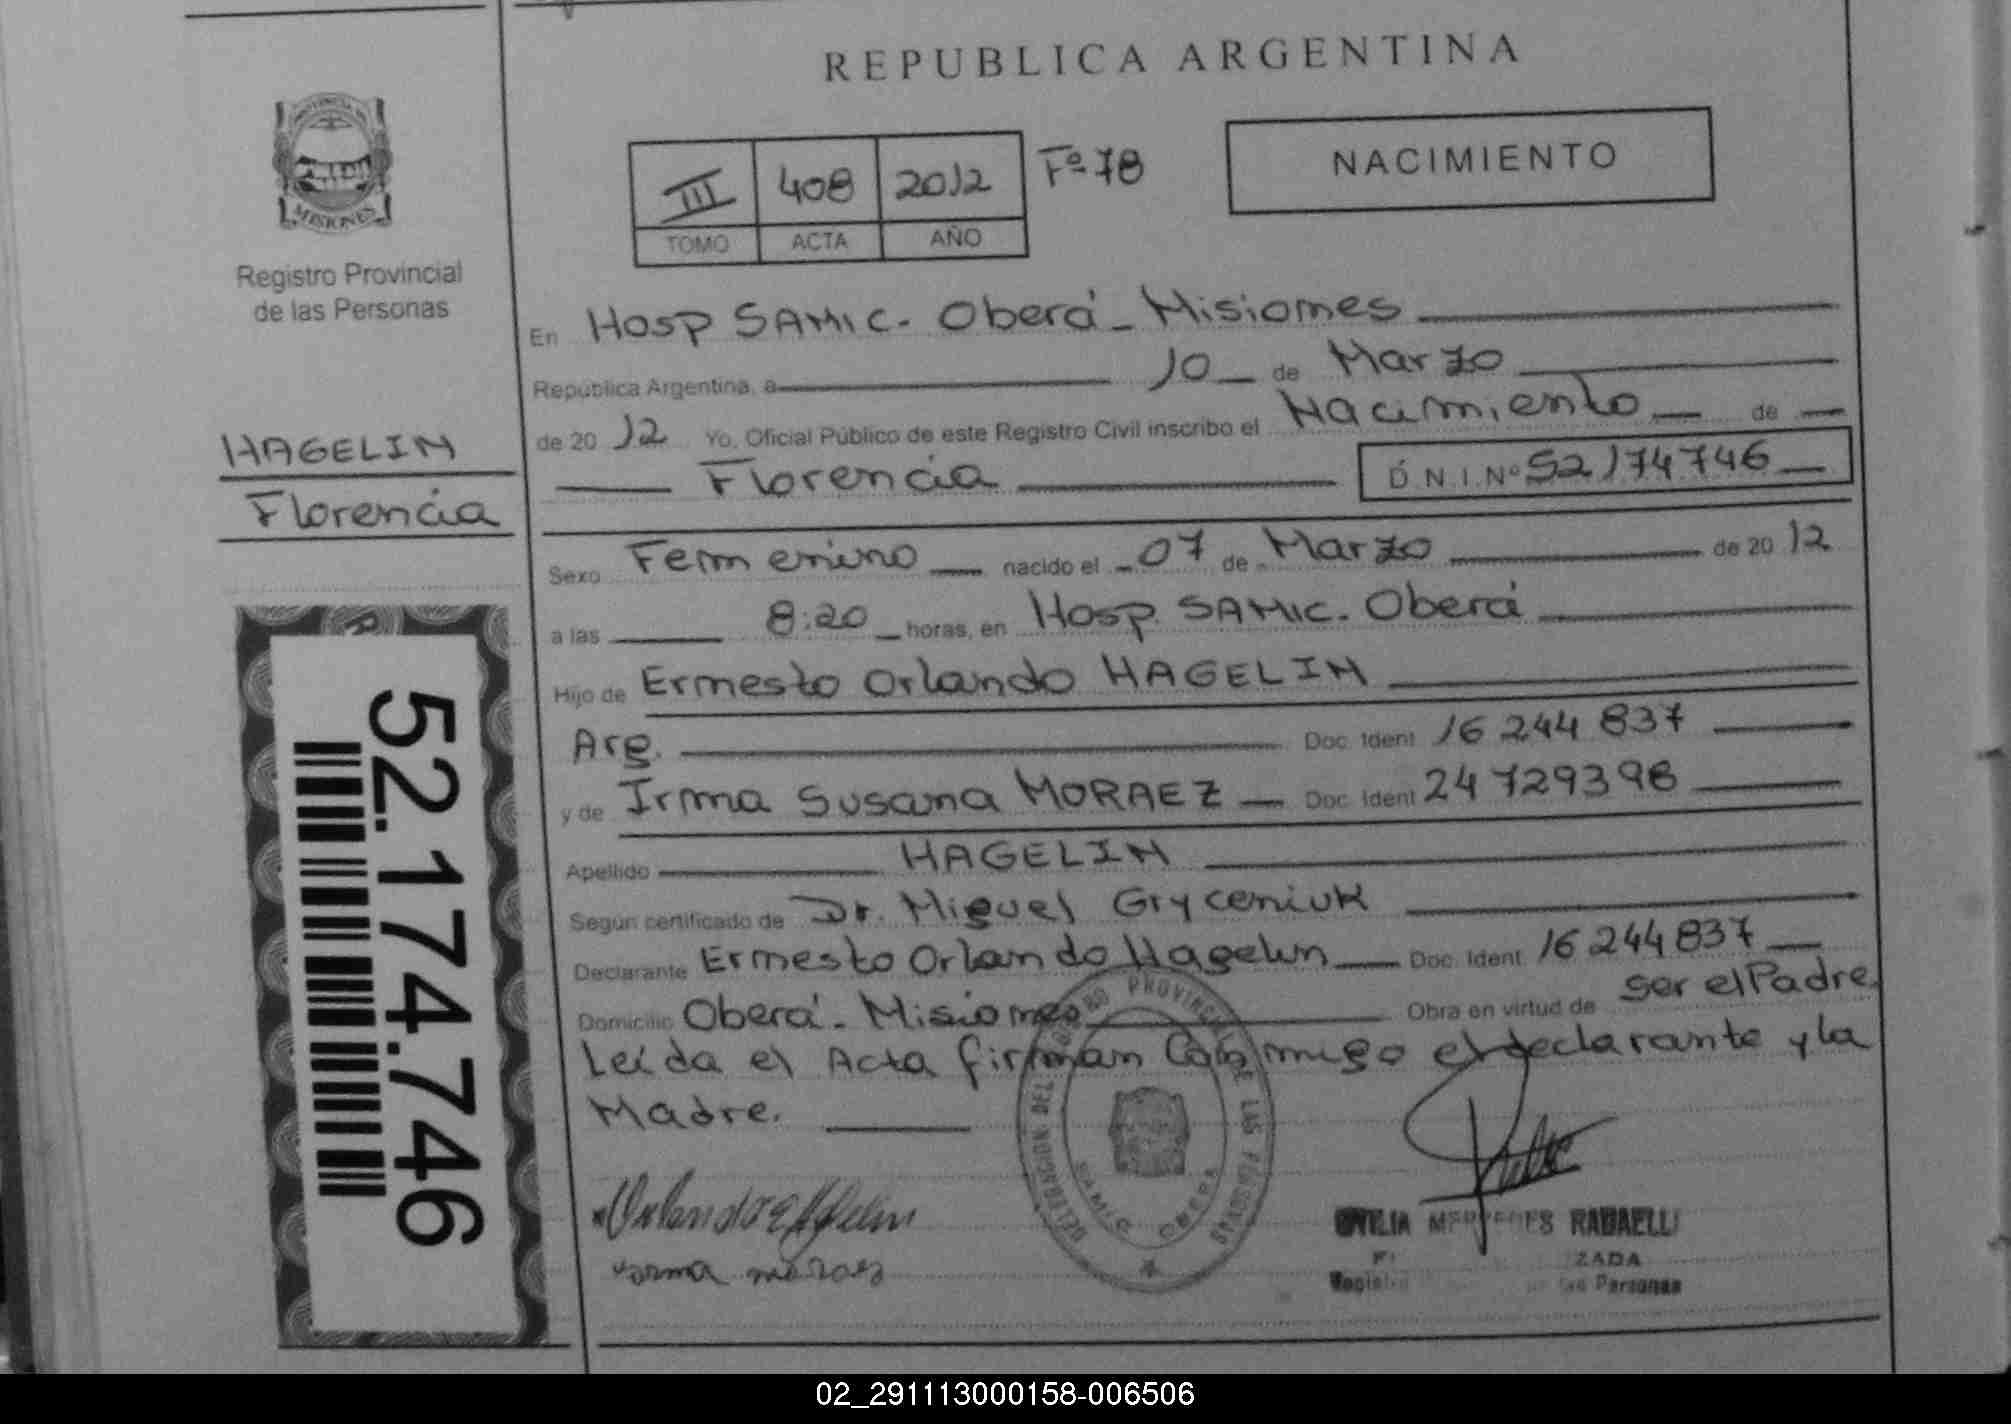 REPUBLICA ARGENTINA
PROVINCIA DE
MISIONES
Registro Provincial
de las Personas
III 408 2012 Fº 78
TOMO ACTA AÑO
NACIMIENTO
HAGELIN
Florencia
52.174.746
En Hosp SAMIC. Oberá - Misiones
República Argentina, a 10 de Marzo
de 2012 Yo, Oficial Público de este Registro Civil inscribo el Nacimiento de
Florencia D.N.I.Nº 52174746
Sexo Femenino nacido el 07 de Marzo de 2012
a las 8:20 horas, en Hosp. SAMIC. Oberá
Hijo de Ernesto Orlando HAGELIN
Arg. Doc. Ident 16 244 837
y de Irma Susana MORAEZ Doc. Ident 24 729398
Apellido HAGELIN
Según certificado de Dr. Miguel Gryceniuk
Declarante Ernesto Orlando Hagelin Doc. Ident 16 244 837
Domicilio Oberá - Misiones Obra en virtud de ser el Padre.
Leída el Acta firman Conmigo el declarante y la
Madre.
DELEGACION DEL REGISTRO PROVINCIAL DE LAS PERSONAS
SAMIC OBERA
MERCEDES RABAELLI
ZADA
Personas
02_291113000158-006506